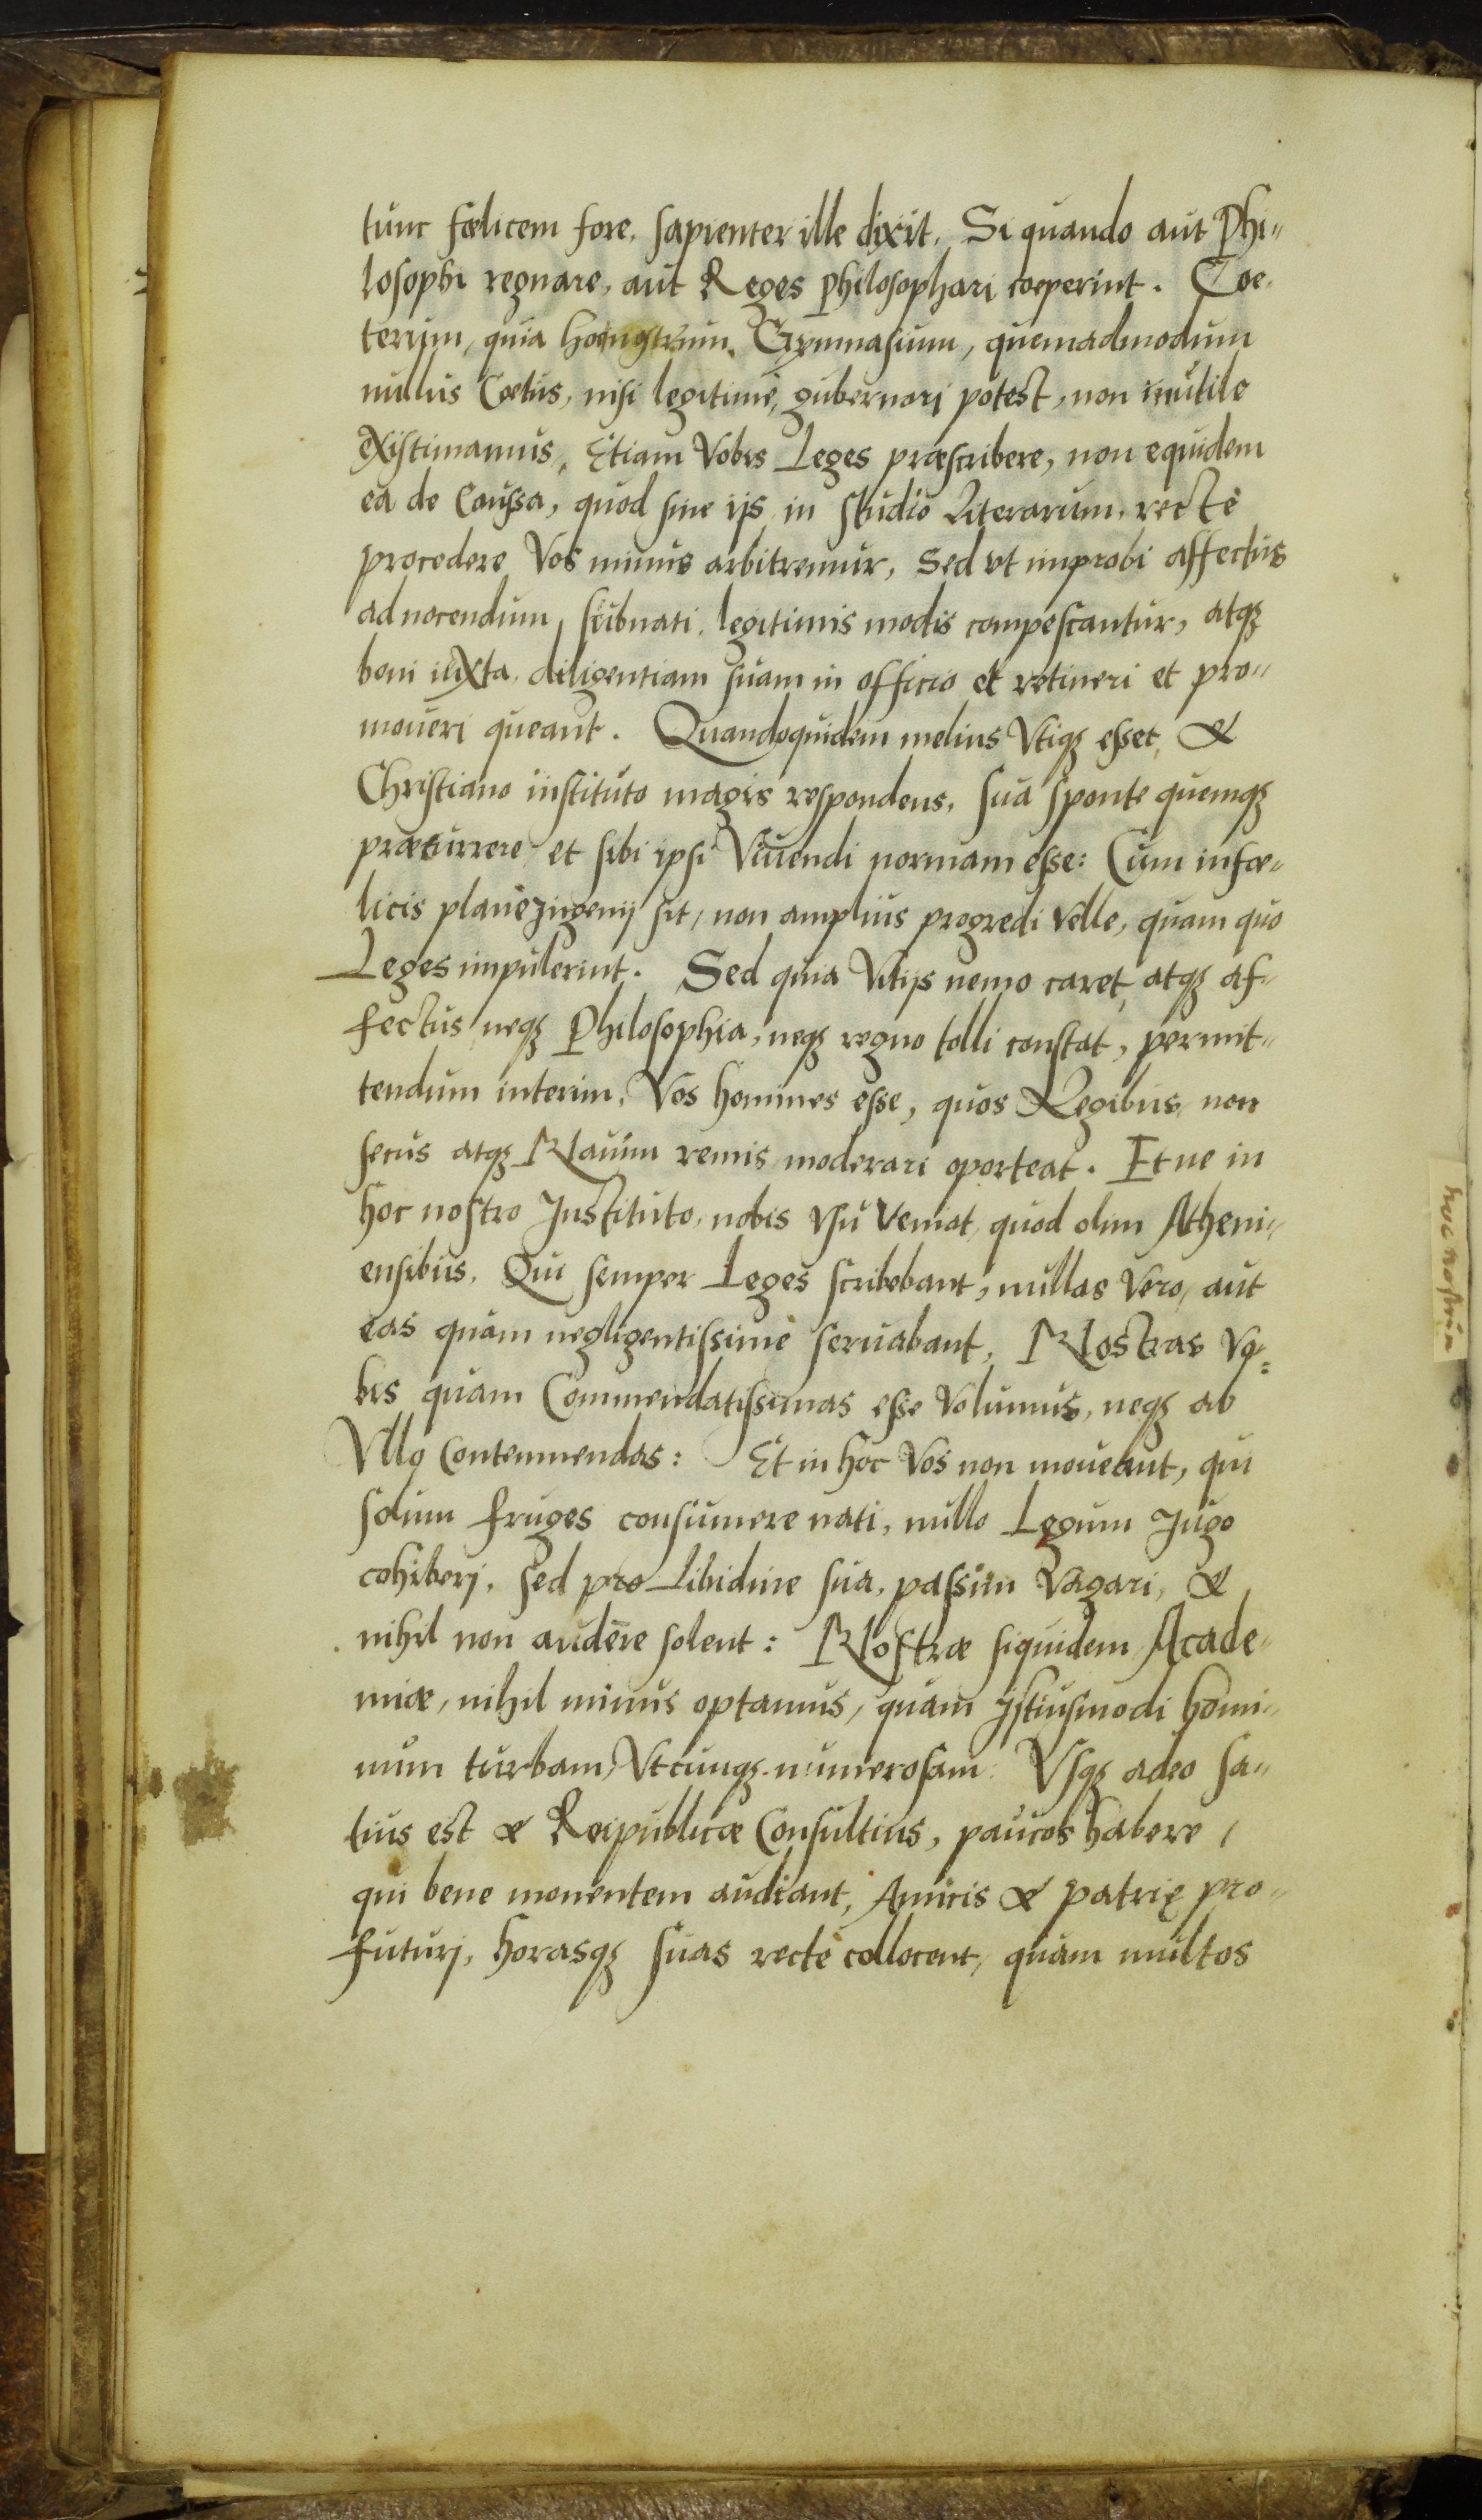 tunc fœlicem fore, sapienter ille dixit, Si quando aut Phi„
losophi regnare, aut Reges philosophari coeperint. Coe„
terum, quia hoc nostrum Gymnasium, quemadmodum
nullus Cœtus, nisi legitimè, gubernari potest, non inutile
existimamus, Etiam Vobis Leges præscribere, non equidem
ea de Caussa, quod sine ijs in studio Literarum, rectè
procedere Vos minus arbitremur, Sed vt improbi affectus
ad nocendum subnati, legitimis modis compescantur, atqꝫ
boni iuxta diligentiam suam in officio et retineri et pro„
moueri queant. Quandoquidem melius Vtiqꝫ esset, &
Christiano instituto magis respondens, sua sponte quemqꝫ
præcurrere et sibi ipsi Viuendi normam esse: Cum infœ„
licis planè Jngenij sit, non amplius progredi Velle, quam quo
Leges impulerint. Sed quia Vitijs nemo caret, atqꝫ af„
fectus neqꝫ Philosophia, neqꝫ regno tolli constat, permit„
tendum interim, Vos homines esse, quos Legibus, non
secus atqꝫ Nauim remis moderari oporteat. Et ne in
hoc nostro Jnstituto, nobis vsu Veniat, quod olim Atheni„
ensibus, Qui semper Leges scribebant, nullas Vero, aut
eas quàm negligentissimè seruabant, Nostras Vo„
bis quam Commendatissimas esse Volumus, neqꝫ ab
Vllo Contemnendas: Et in hoc Vos non moueant, qui
solum fruges consumere nati, nullo Legum Jugo
cohiberj, sed pro Libidine sua, passim Vagari, &
nihil non audere solent: Nostræ siquidem Acade„
miæ, nihil minus optamus, quam Jstiusmodi homi„
num turbam, Vtcunqꝫ numerosam: Vsqꝫ adeo sa„
tius est & Reipublicæ Consultius, paucos habere,
qui bene monentem audiant, Amicis & patrię pro„
futurj, horasqꝫ suas rectè collocent, quàm multos